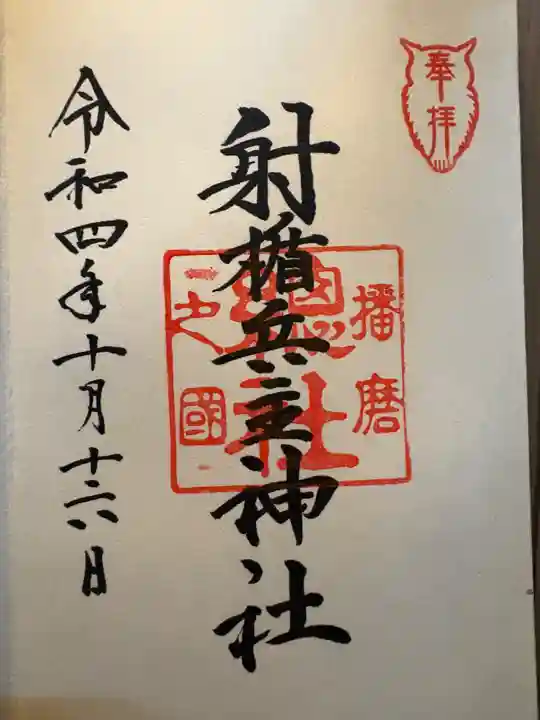 奉拝
播磨
射楯兵主神社
之國
令和四年十月十六日